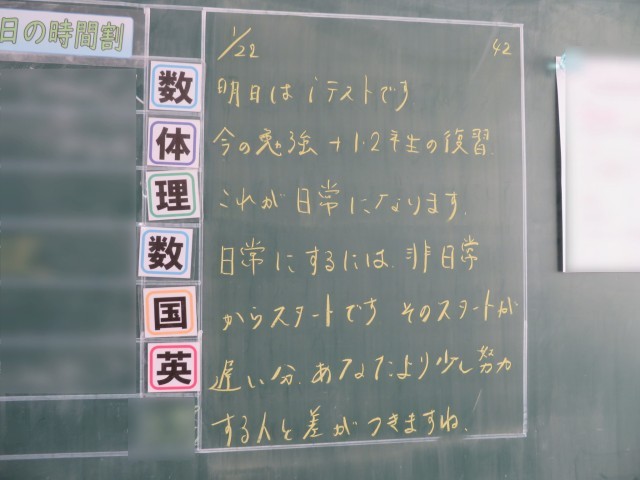 日の時間割
数
体
理
数
国
英
1/22 42
明日はiテストです
今の勉強+1・2年生の復習
これが日常になります。
日常にするには、非日常
からスタートです そのスタートが
遅い分、あなたより少し努力
する人と差がつきますね。